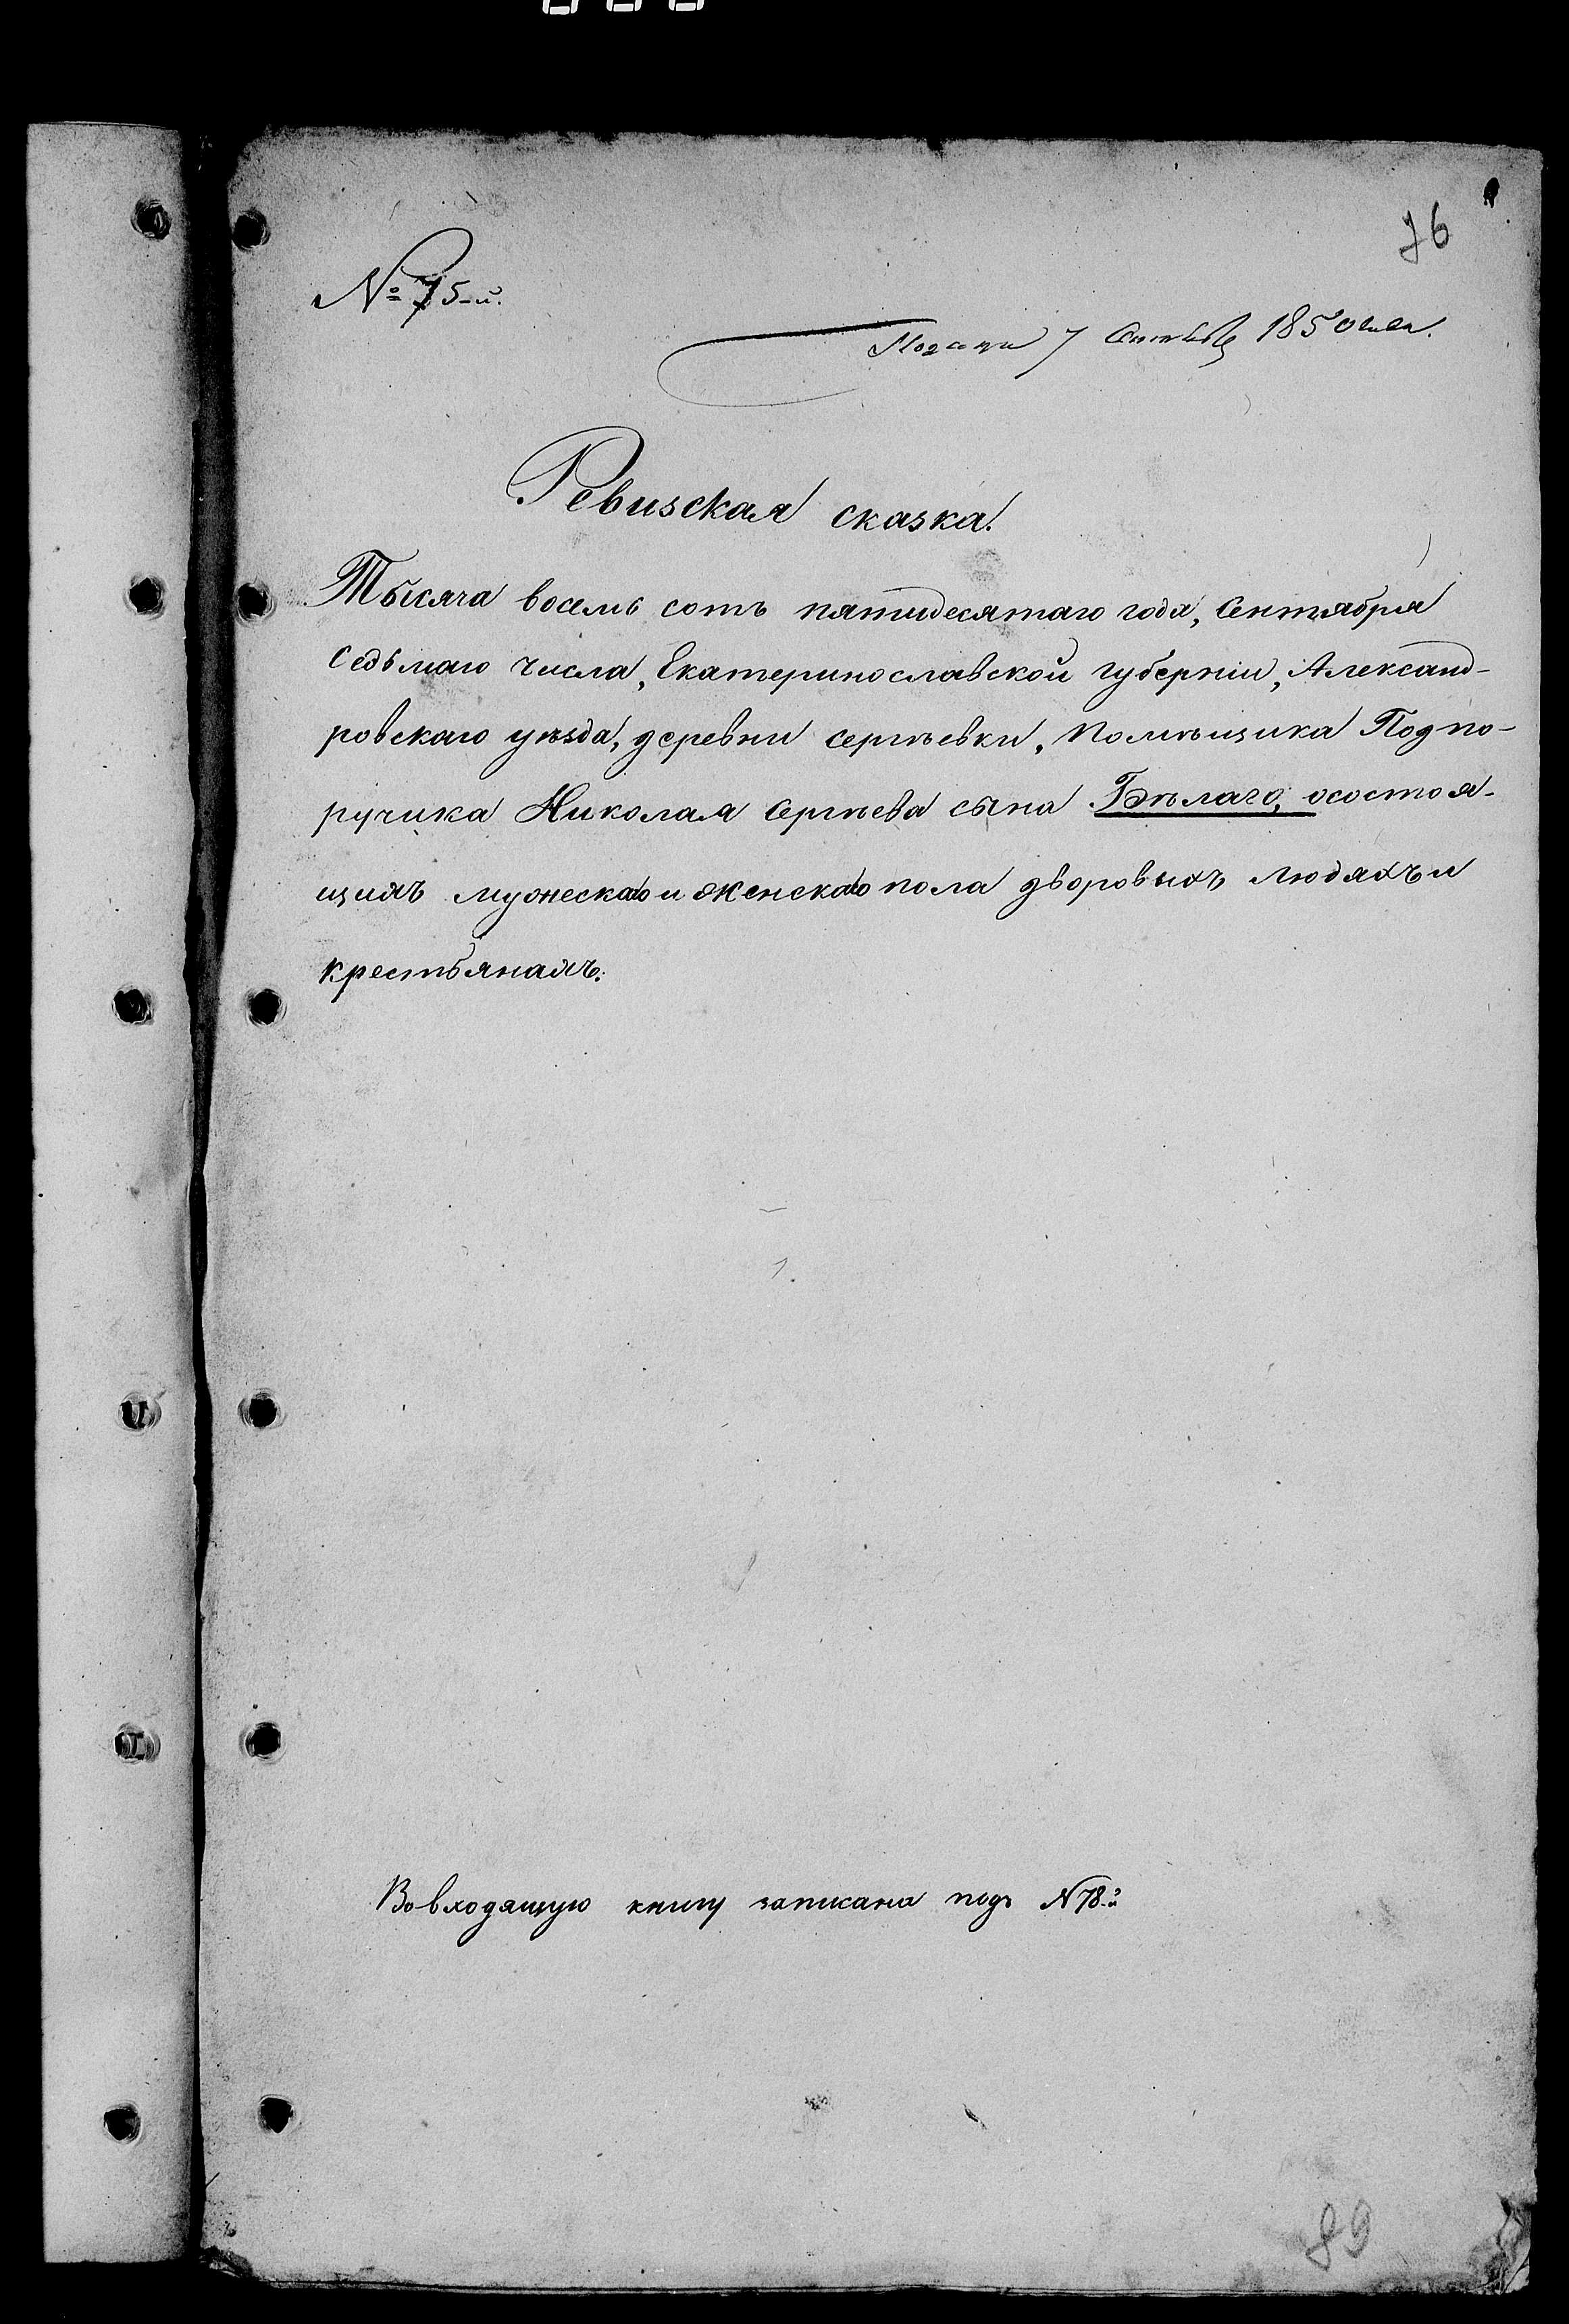 76
№ 75-й.
Подана 7 Сентября 1850 года.
Ревизская сказка.
Тысяча восемь сотъ пятидесятаго года, Сентября
седьмаго числа, Екатеринославской губерніи, Александ-
ровскаго уѣзда, деревни Сергѣевки, Помѣщика Подпо-
ручика Николая Сергѣева сына Бѣлаго, осостоя-
щихъ мужескаго и женскаго пола дворовыхъ людяхъ и
крестьянахъ.
Во входящую книгу записана подъ N 78-й
89